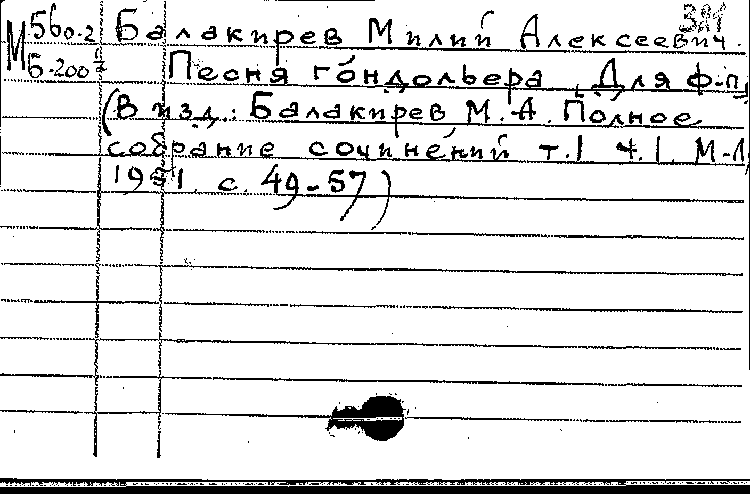 М 560-2 Балакирев Милий Алексеевич.
Б-200 Песня гондольера. Для ф-п.
(В изд.: Балакирев М.А. Полное
собрание сочинений т.1 ч.1. М-Л,
1951. с. 49-57)